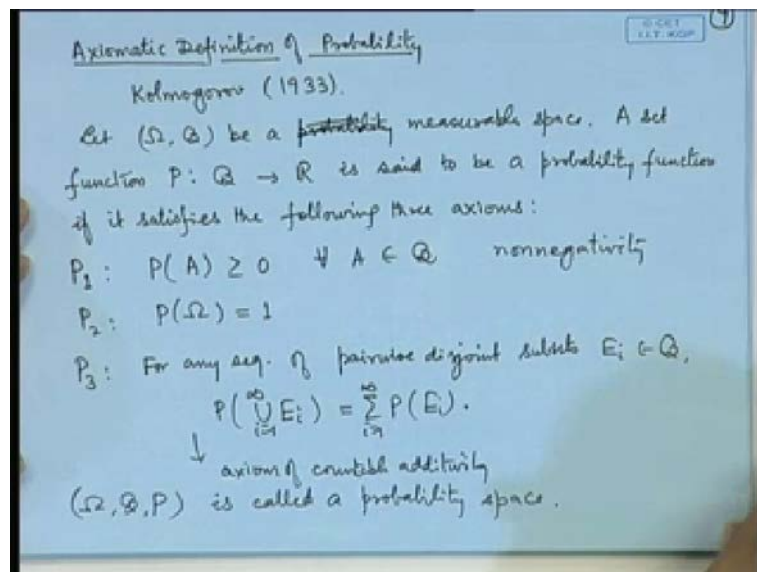 © CET
I.I.T. KGP
Axiomatic Definition of Probability
Kolmogorov (1933).
Let (Ω, ℬ) be a measurable space. A set
function P: ℬ → ℝ is said to be a probability function
if it satisfies the following three axioms:
P₁: P(A) ≥ 0 ∀ A ∈ ℬ nonnegativity
P₂: P(Ω) = 1
P₃: For any seq. of pairwise disjoint subsets Eᵢ ∈ ℬ,
P(⋃_{i=1}^{∞} Eᵢ) = ∑_{i=1}^{∞} P(Eᵢ).
↓ axiom of countable additivity
(Ω, ℬ, P) is called a probability space.